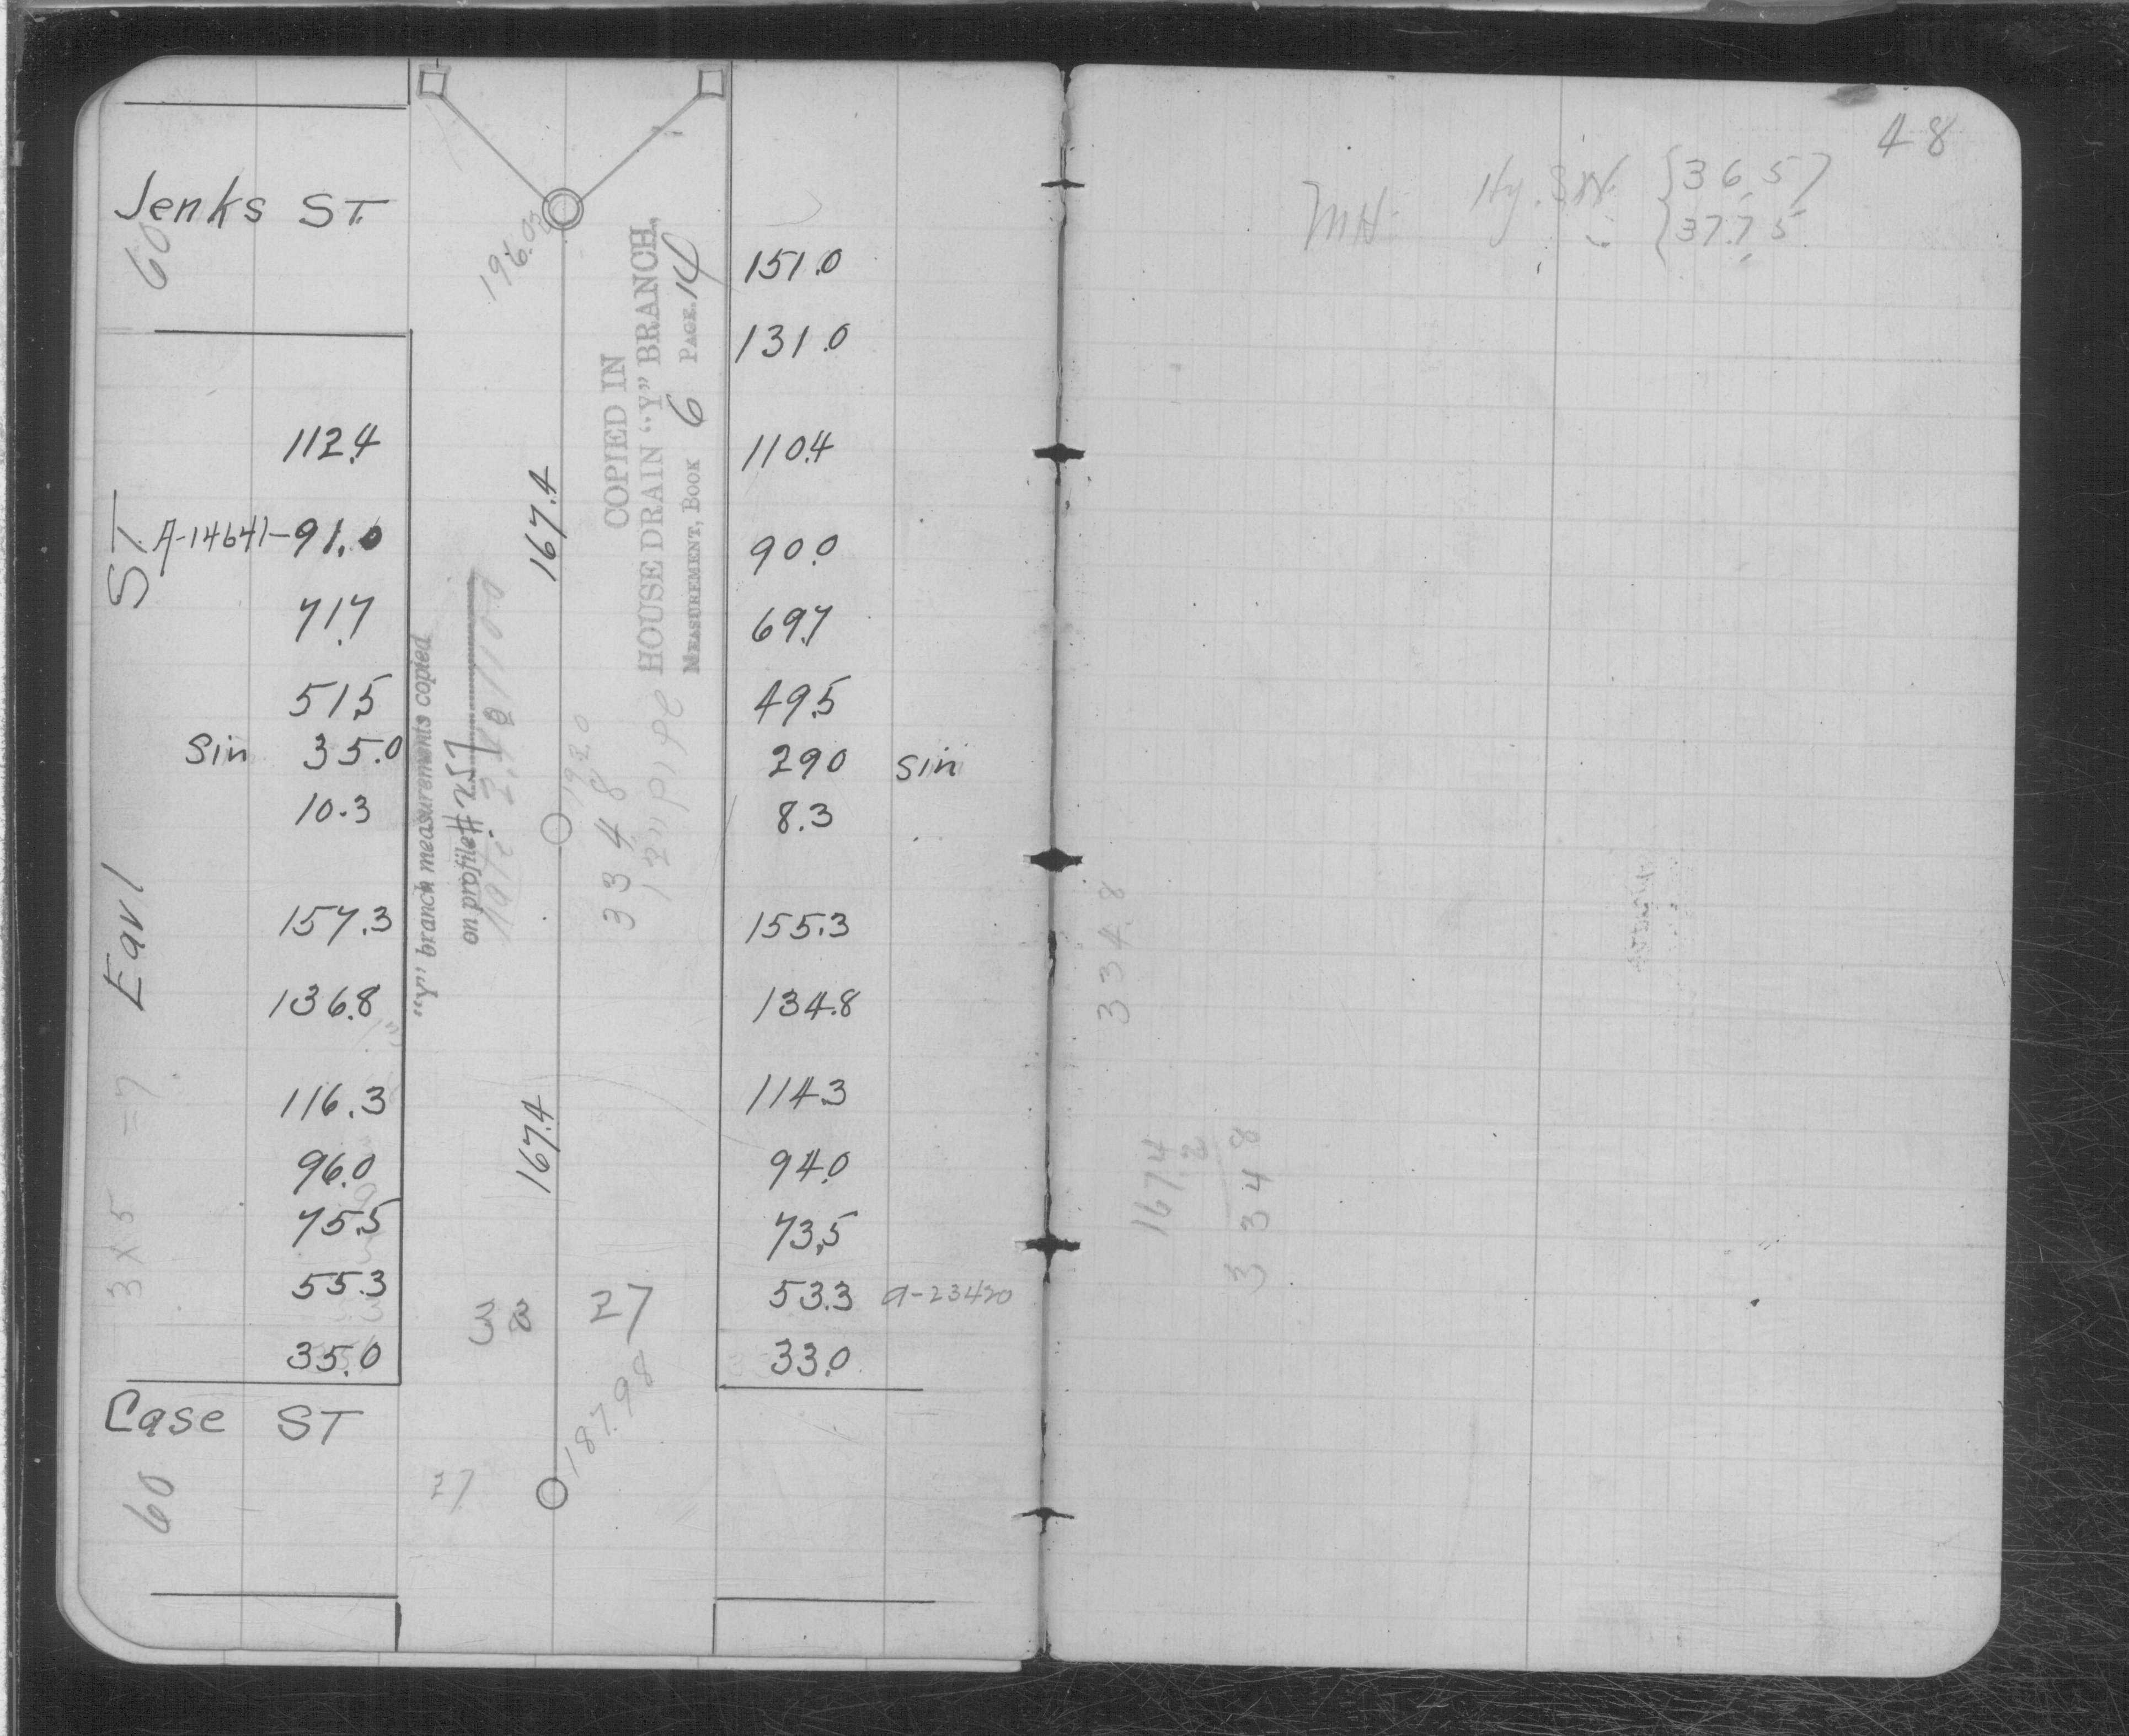 Jenks ST.
60
196.03
151.0
131.0
112.4
110.4
ST
A-14641-91.0
90.0
167.4
71.7
69.7
51.5
49.5
Sin 35.0
29.0 Sin
10.3
8.3
COPIED IN
HOUSE DRAIN "Y" BRANCH.
MEASUREMENT, BOOK 6 PAGE 14
"Y" branch measurements copied
on profile # 257
334.8
12" pipe
Earl
157.3
155.3
136.8
134.8
116.3
114.3
167.4
96.0
94.0
75.5
73.5
3 x 5 = 7
55.3
53.3 a-23420
33
27
35.0
33.0
187.98
Case ST
60
27
48
MH. Hy. S.W. {36.5}
{37.75
334.8
167.4
2
334.8